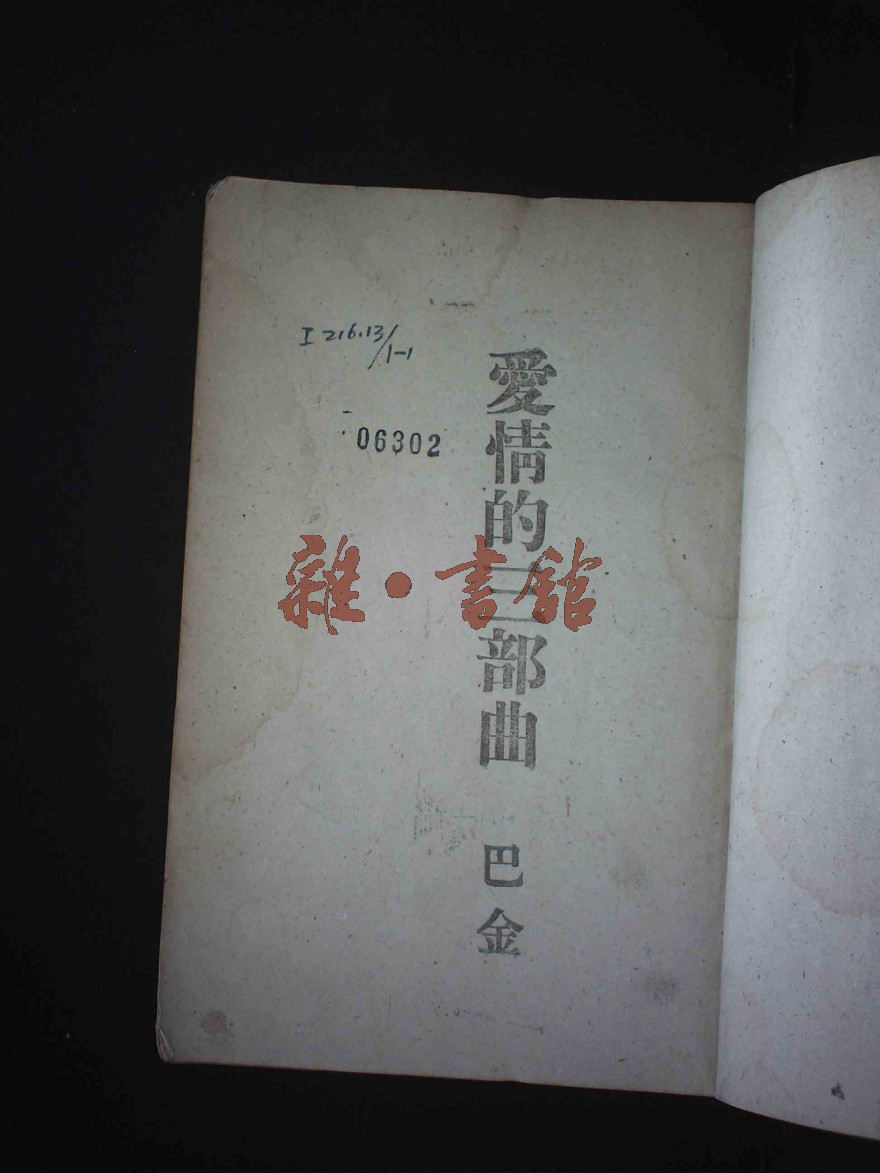 I 216.13/1-1
06302
愛情的三部曲
巴金
雜·書館